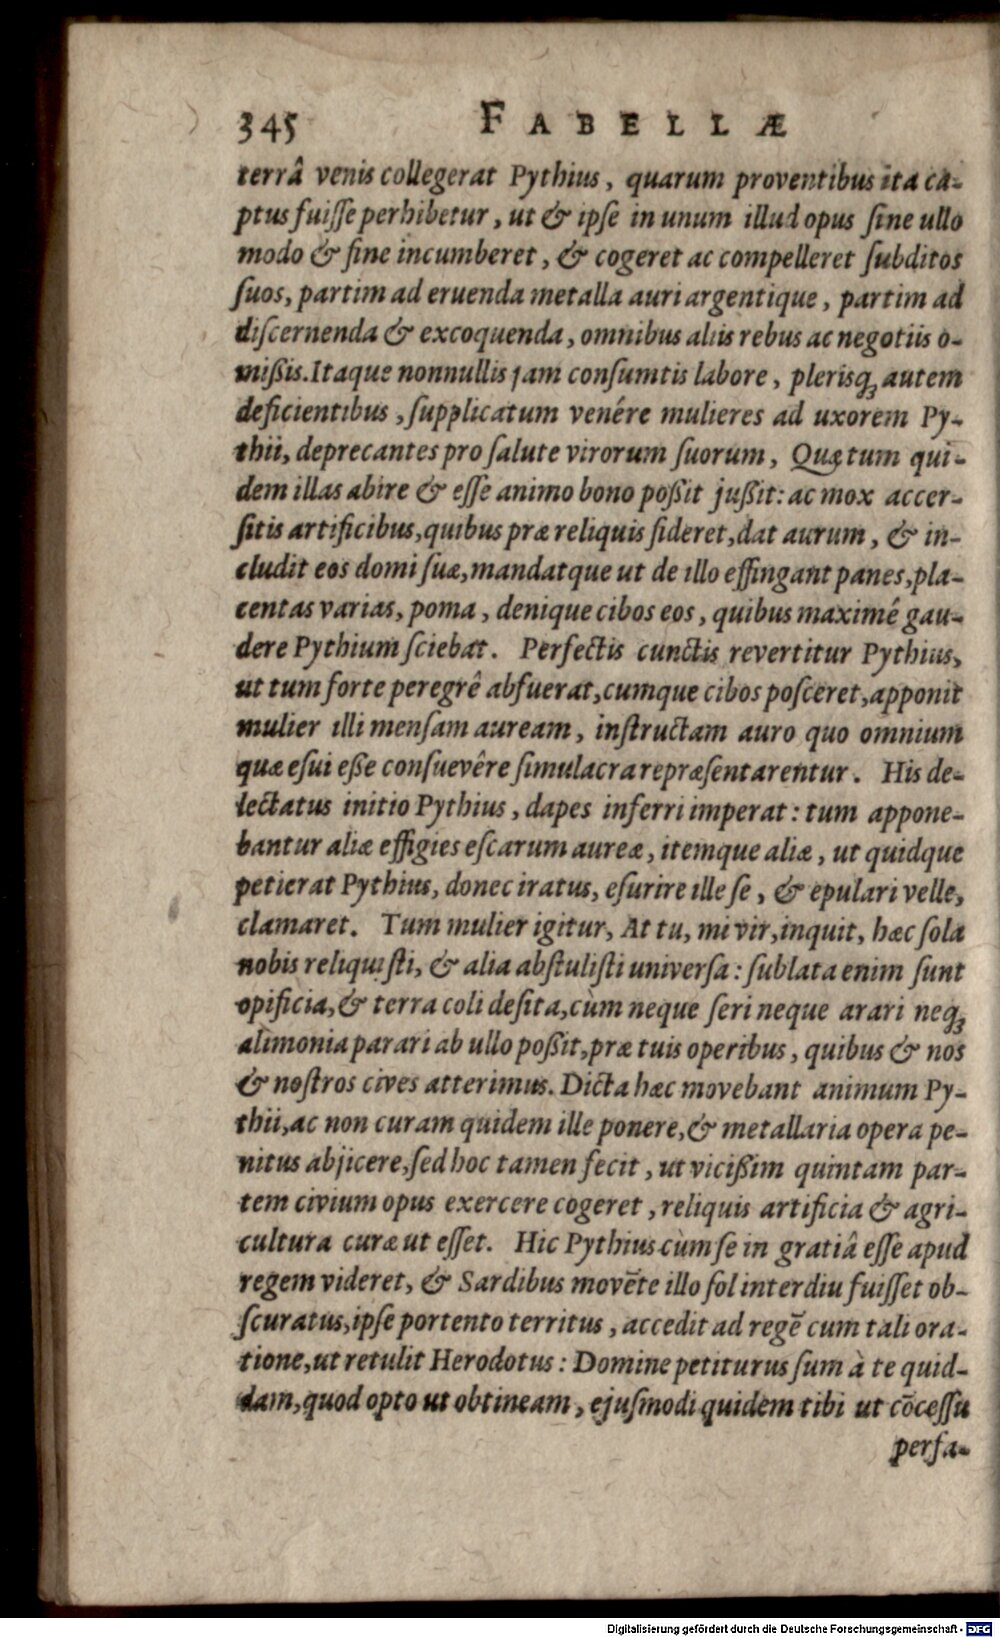 345 FABELLÆ
terrâ venis collegerat Pythius, quarum proventibus ita ca-
ptus fuiſſe perhibetur, ut & ipſe in unum illud opus ſine ullo
modo & fine incumberet, & cogeret ac compelleret ſubditos
ſuos, partim ad eruenda metalla auri argentique, partim ad
diſcernenda & excoquenda, omnibus aliis rebus ac negotiis o-
miſſis. Itaque nonnullis jam conſumtis labore, plerisq́ꝫ autem
deficientibus, ſupplicatum venére mulieres ad uxorem Py-
thii, deprecantes pro ſalute virorum ſuorum, Quæ tum qui-
dem illas abire & eſſe animo bono poßit jußit: ac mox accer-
ſitis artificibus, quibus præ reliquis fideret, dat aurum, & in-
cludit eos domi ſuæ, mandatque ut de illo effingant panes, pla-
centas varias, poma, denique cibos eos, quibus maximé gau-
dere Pythium ſciebat. Perfectis cunctis revertitur Pythius,
ut tum forte peregrê abfuerat, cumque cibos poſceret, apponit
mulier illi menſam auream, inſtructam auro quo omnium
quæ eſui eße conſuevêre ſimulacra repræſentarentur. His de-
lectatus initio Pythius, dapes inferri imperat: tum appone-
bantur aliæ effigies eſcarum aureæ, itemque aliæ, ut quidque
petierat Pythius, donec iratus, eſurire ille ſe, & epulari velle,
clamaret. Tum mulier igitur, At tu, mi vir, inquit, hæc ſola
nobis reliquiſti, & alia abſtuliſti univerſa: ſublata enim ſunt
opificia, & terra coli deſita, cùm neque ſeri neque arari neqꝫ
alimonia parari ab ullo poßit, præ tuis operibus, quibus & nos
& noſtros cives atterimus. Dicta hæc movebant animum Py-
thii, ac non curam quidem ille ponere, & metallaria opera pe-
nitus abjicere, ſed hoc tamen fecit, ut vicißim quintam par-
tem civium opus exercere cogeret, reliquis artificia & agri-
cultura curæ ut eſſet. Hic Pythius cùm ſe in gratiâ eſſe apud
regem videret, & Sardibus movēte illo ſol interdiu fuiſſet ob-
ſcuratus, ipſe portento territus, accedit ad regē cum tali ora-
tione, ut retulit Herodotus: Domine petiturus ſum à te quid-
dam, quod opto ut obtineam, ejuſmodi quidem tibi ut cōceſſu
perfa-
Digitalisierung gefördert durch die Deutsche Forschungsgemeinschaft - DFG